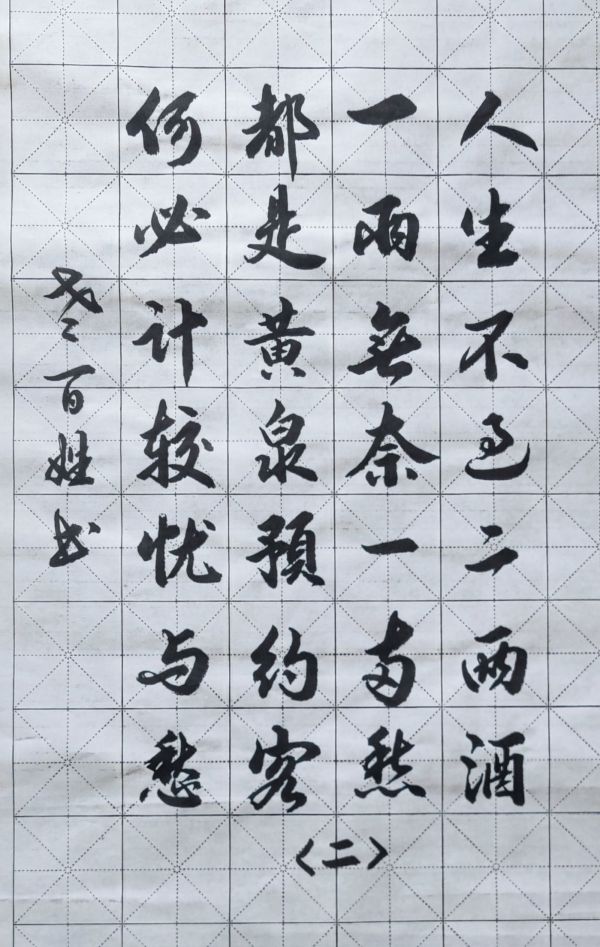 人生不过二两酒
一两無奈一两愁
都是黄泉預约客
何必计较忧与愁
老百姓书
〈二〉